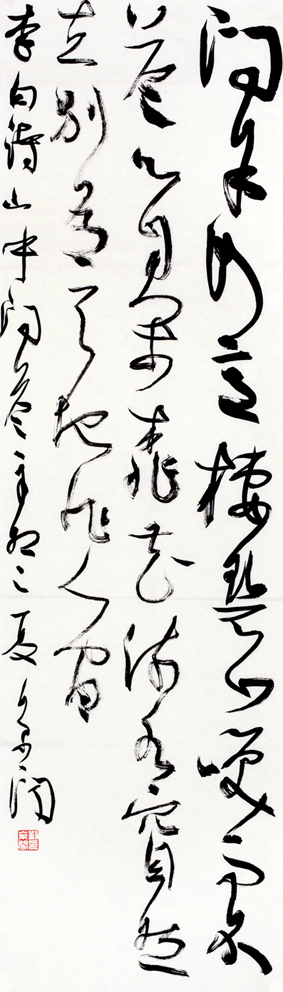 問余何意棲碧山笑而不
答心自閒桃花流水窅然
去別有天地非人間
李白詩山中問答辛卯之夏